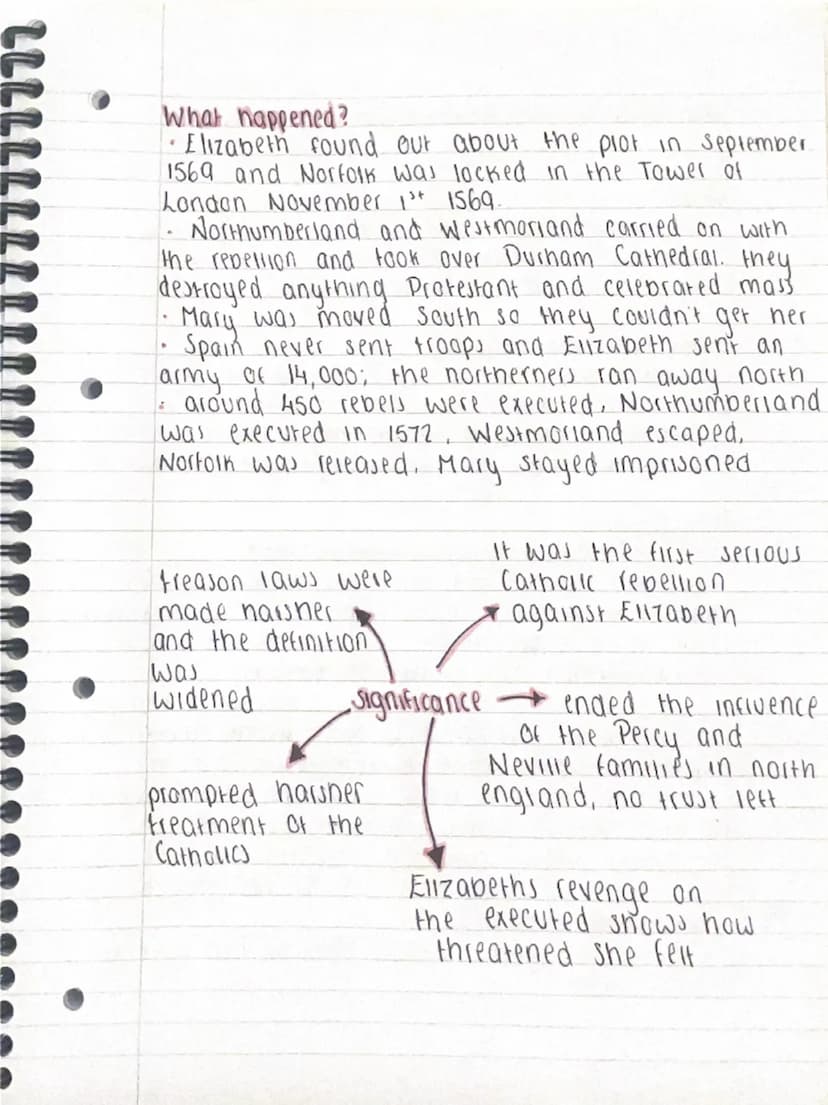 What happened?
· Elizabeth found out about the plot in September
1569 and Norfolk was locked in the Tower of
London November 1st 1569.
· Northumberland and Westmorland carried on with
the rebellion and took over Durham Cathedral. they
destroyed anything Protestant and celebrated mass
· Mary was moved South so they couldn't get her
· Spain never sent troops and Elizabeth sent an
army of 14,000; the northerners ran away north
· around 450 rebels were executed, Northumberland
was executed in 1572, Westmorland escaped,
Norfolk was released, Mary stayed imprisoned
treason laws were
made harsher
and the definition
was
widened
It was the first serious
Catholic rebellion
against Elizabeth
significance
ended the influence
of the Percy and
Neville families in north
england, no trust left
prompted harsher
treatment of the
Catholics
Elizabeths revenge on
the executed shows how
threatened she felt